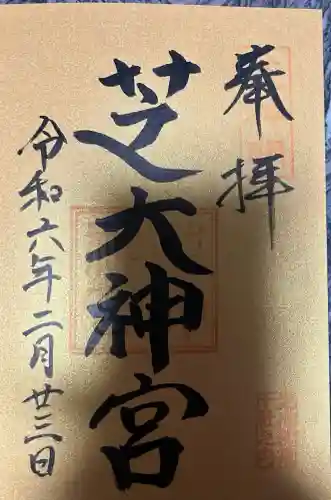 奉拝
芝大神宮
令和六年二月廿三日